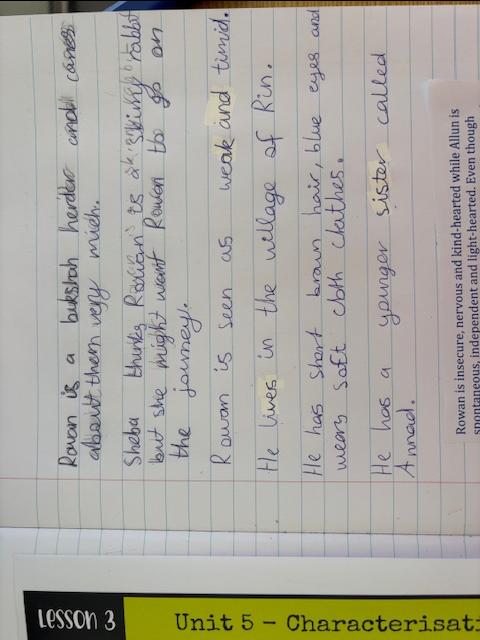 Rowan is a bukshah herder and cares
about them very much.
Sheba thinks Rowan is a skinny rabbit
but she might want Rowan to go on
the journey.
Rowan is seen as weak and timid.
He lives in the village of Rin.
He has short brown hair, blue eyes and
wears soft cloth clothes.
He has a younger sister called
Annad.
Rowan is insecure, nervous and kind-hearted while Allun is
spontaneous, independent and light-hearted. Even though
LESSON 3
Unit 5 - Characterisati